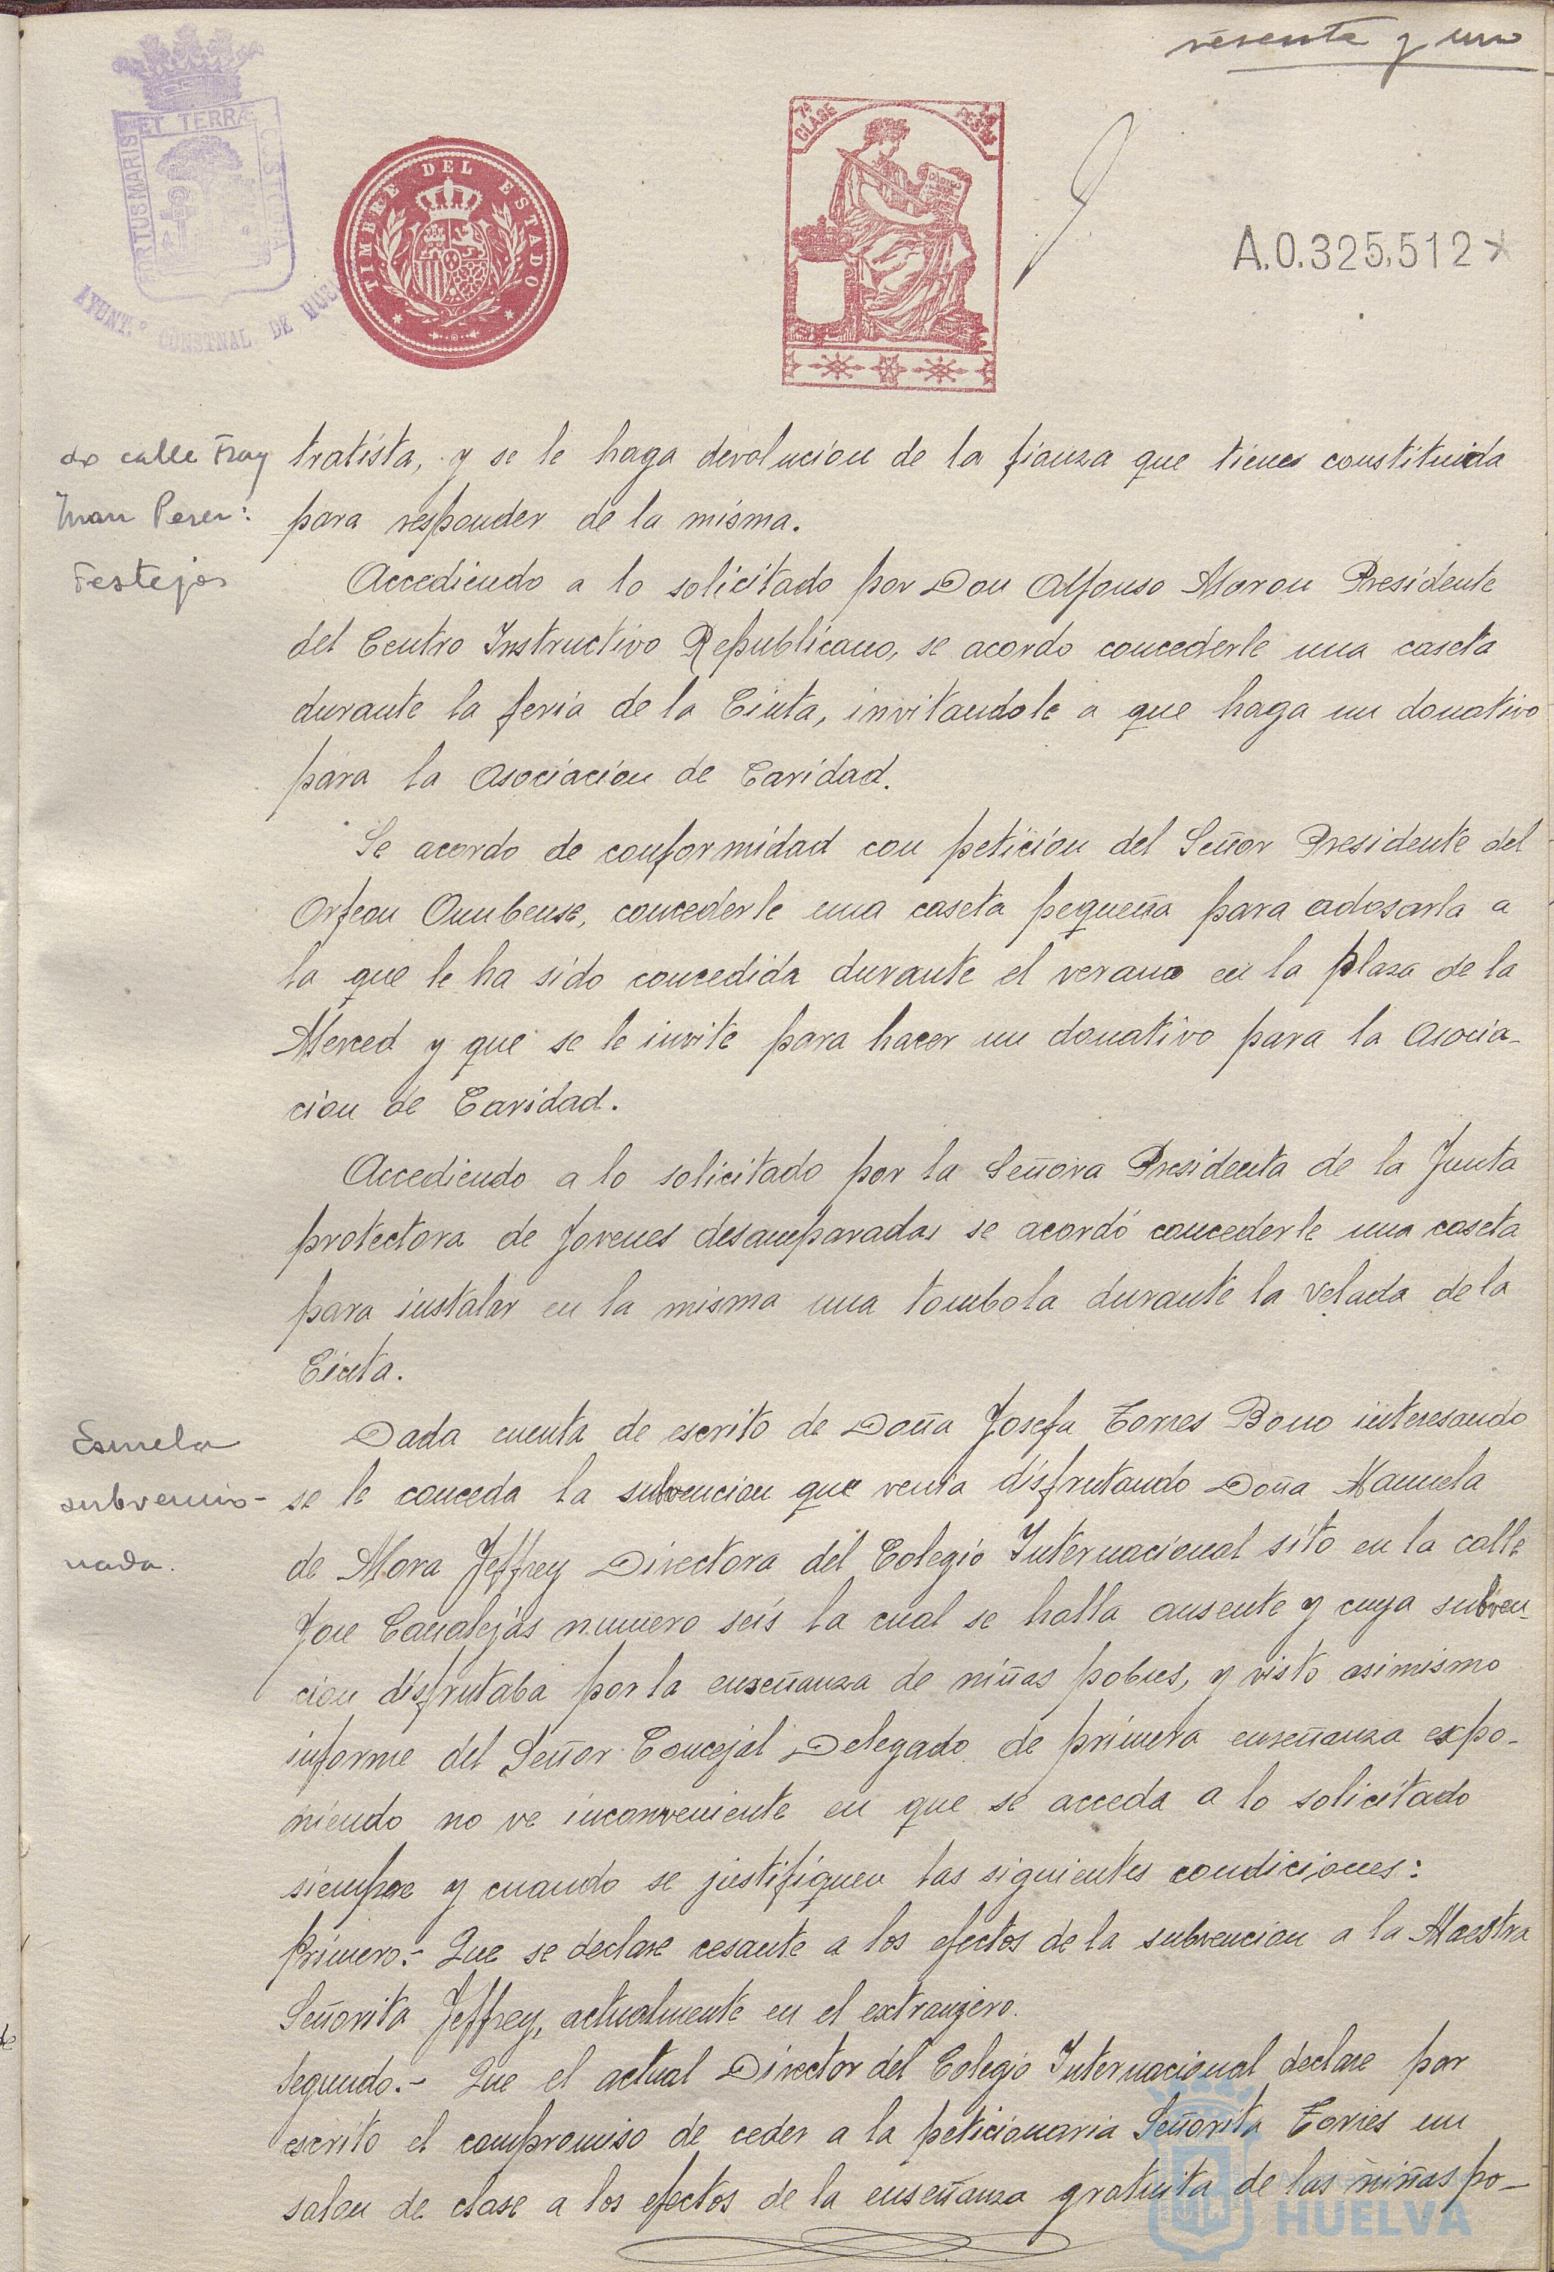 sesenta y uno
ET TERRÆ
PORTUS MARIS
CUSTODIA
AYUNT.º CONSTNAL DE HUE
TIMBRE DEL ESTADO
7ª CLASE
A.0.325,512
de calle Fray
Juan Perez:
tratista, y se le haga devolucion de la fianza que tienes constituida
para responder de la misma.
Festejos
Accediendo a lo solicitado por Don Alfonso Moron Presidente
del Centro Instructivo Republicano, se acordo concederle una caseta
durante la feria de la Cinta, invitandole a que haga un donativo
para la Asociacion de Caridad.
Se acordo de conformidad con petición del Señor Presidente del
Orfeon Onubense, concederle una caseta pequeña para adosarla a
la que le ha sido concedida durante el verano en la plaza de la
Merced y que se le invite para hacer un donativo para la Asocia-
cion de Caridad.
Accediendo a lo solicitado por la Señora Presidenta de la Junta
protectora de Jovenes desamparadas se acordó concederle una caseta
para instalar en la misma una tombola durante la velada de la
Cinta.
Escuela
subvencio-
nada.
Dada cuenta de escrito de Doña Josefa Torres Bono interesando
se le conceda la subvencion que venia disfrutando Doña Manuela
de Mora Jeffrey Directora del Colegio Internacional sito en la calle
Jose Canalejas numero seis la cual se halla ausente y cuya subven-
cion disfrutaba por la enseñanza de niñas pobres, y visto asimismo
informe del Señor Concejal Delegado de primera enseñanza expo-
niendo no ve inconveniente en que se acceda a lo solicitado
siempre y cuando se justifiquen las siguientes condiciones:
Primero.- Que se declare cesante a los efectos de la subvencion a la Maestra
Señorita Jeffrey, actualmente en el extranjero.
Segundo.- Que el actual Director del Colegio Internacional declare por
escrito el compromiso de ceder a la peticionaria Señorita Torres un
salon de clase a los efectos de la enseñanza gratuita de las niñas po-
HUELVA